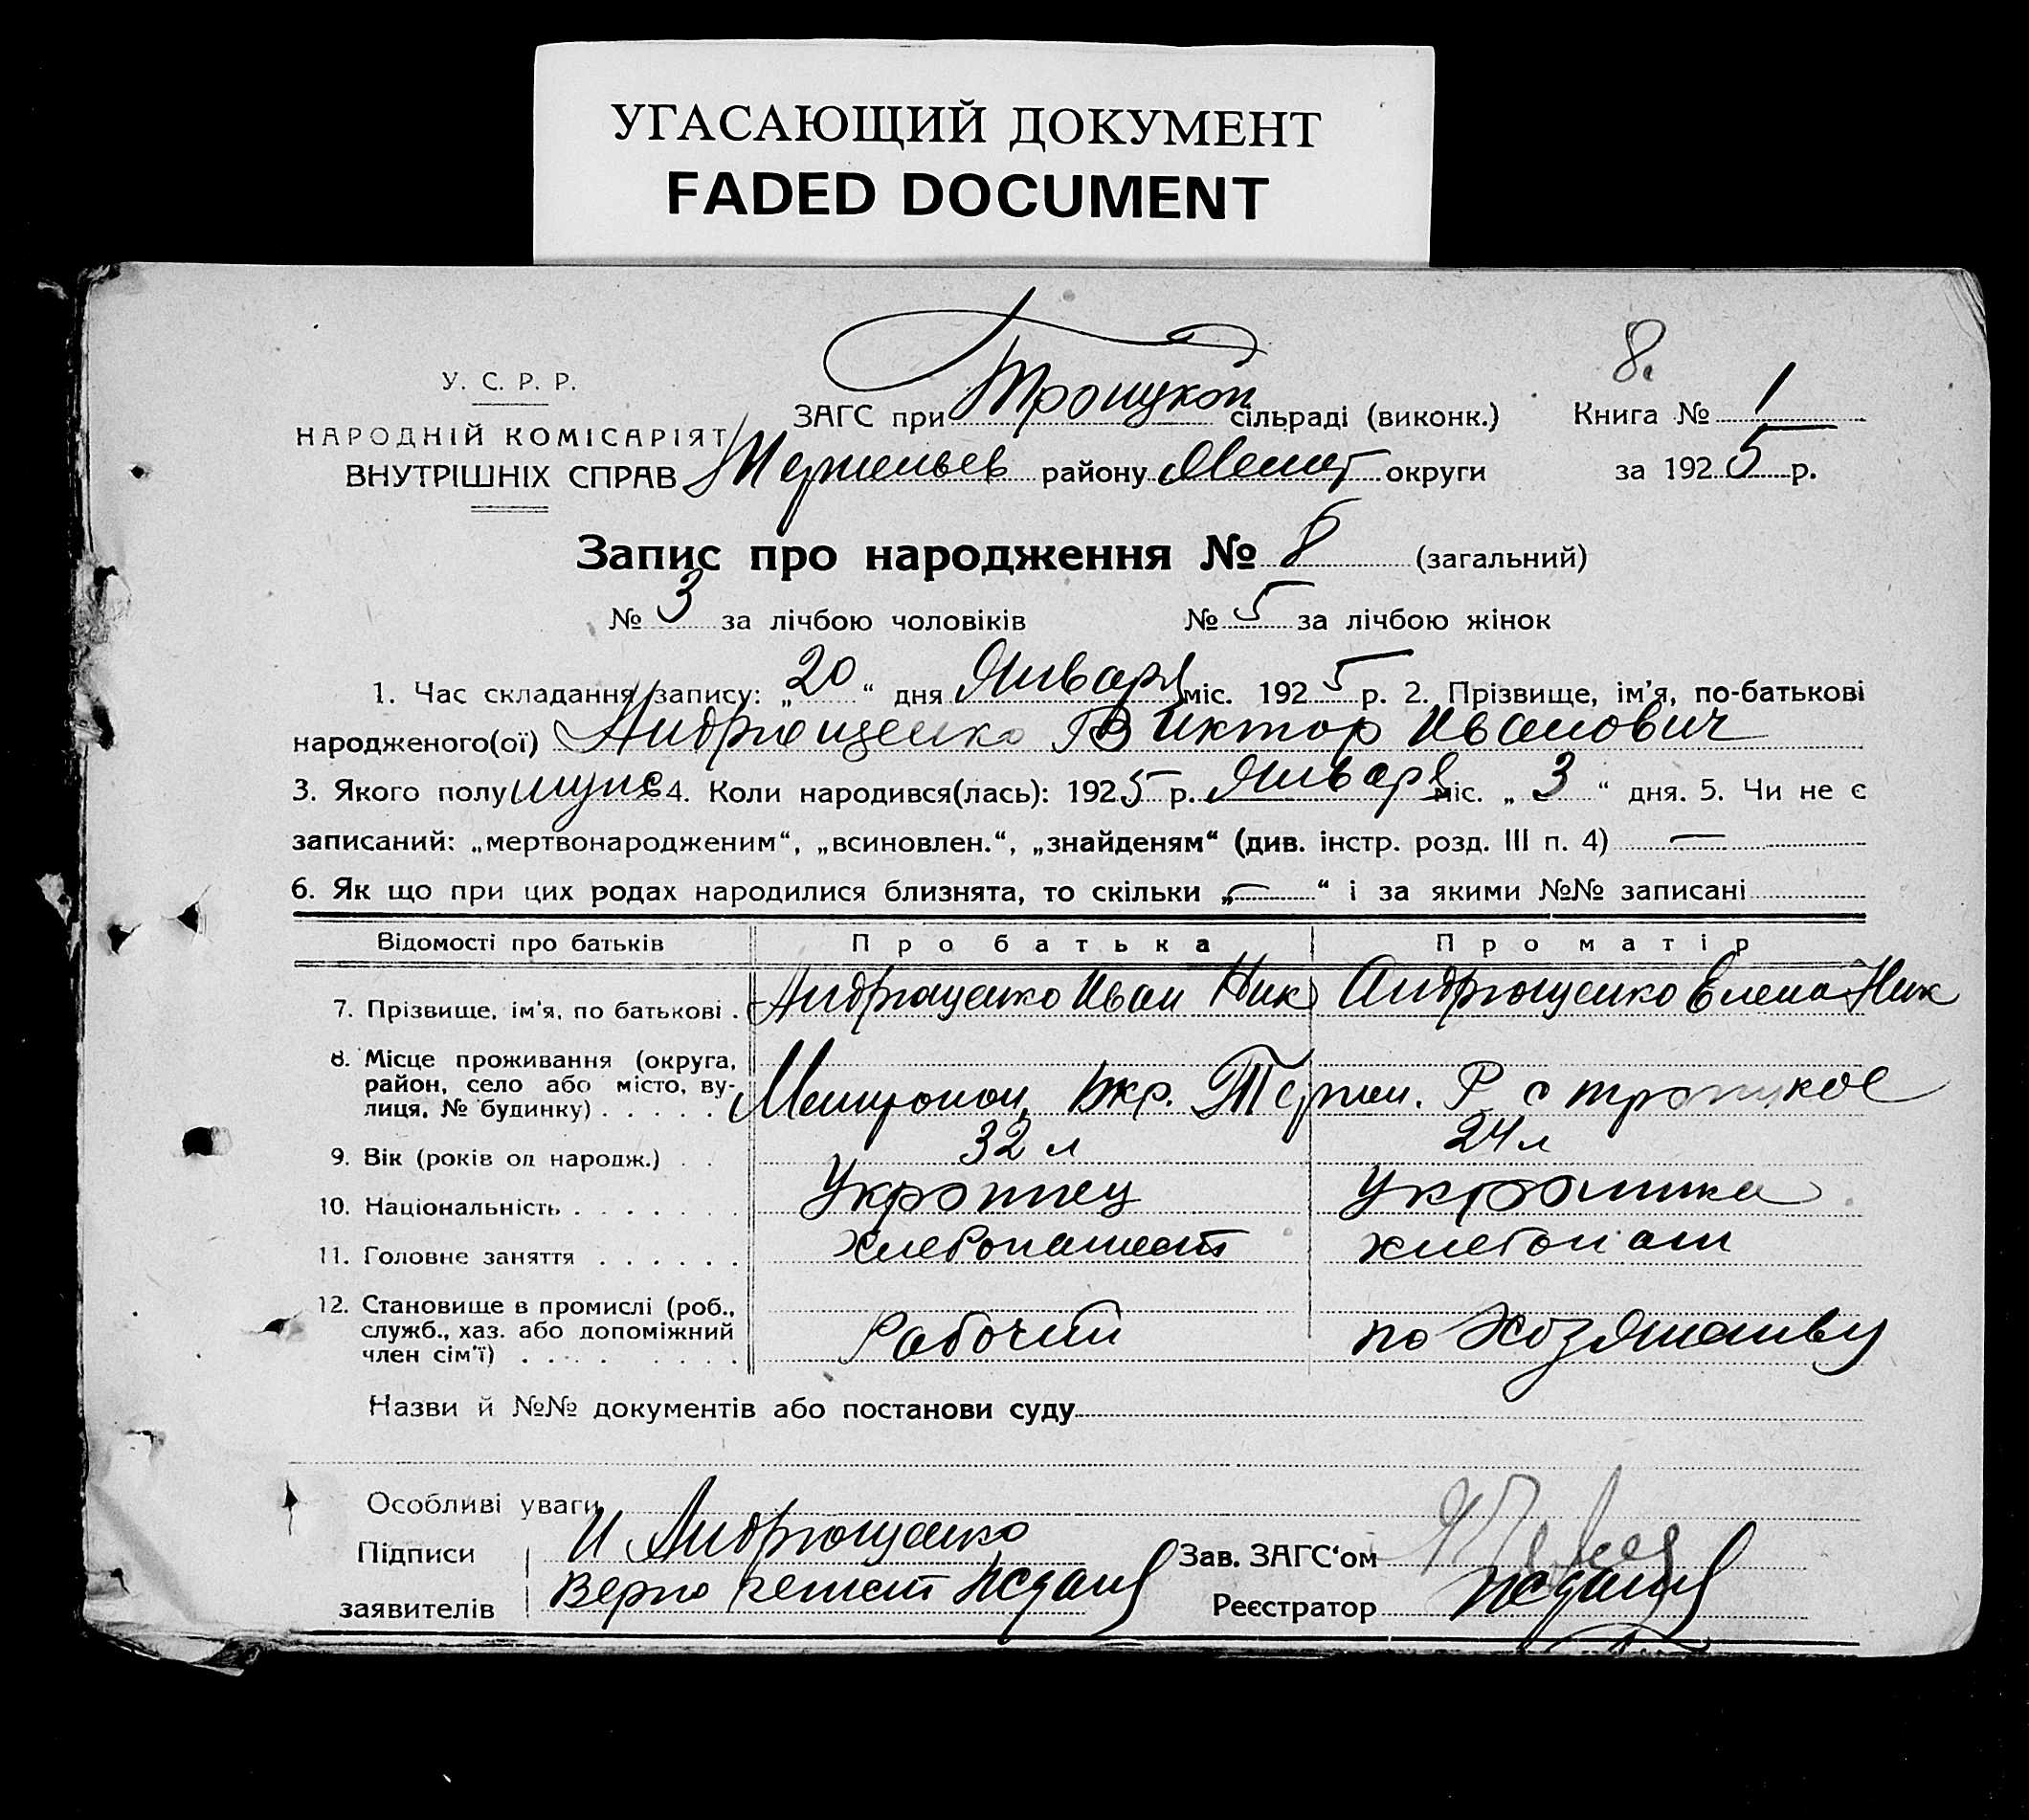 УГАСАЮЩИЙ ДОКУМЕНТ
FADED DOCUMENT
8.
У. С. Р. Р.
НАРОДНІЙ КОМІСАРІЯТ
ВНУТРІШНІХ СПРАВ
ЗАГС при Троицкой сільраді (виконк.)
района Мелит округи
Книга № 1
за 1925 р.
Запис про народження № 8 (загальний)
№ 3 за лічбою чоловіків № 5 за лічбою жінок
1. Час складання запису: „20“ дня Января міс. 1925 р. 2. Прізвище, ім'я, по-батькові
народженого(ої) Андрющенко Виктор Иванович
3. Якого полу муж 4. Коли народився(лась): 1925 р. Января міс. „3“ дня. 5. Чи не є
записаний: „мертвонародженим“, „всиновлен.“, „знайденям“ (див. інстр. розд. III п. 4) —
6. Як що при цих родах народилися близнята, то скільки „—“ і за якими №№ записані
Відомості про батьків Про батька Про матір
7. Прізвище, ім'я, по батькові . Андрющенко Иван Ник Андрющенко Елена Ник
8. Місце проживання (округа,
район, село або місто, ву-
лиця, № будинку) . . . . . Окр. Р. с Троицкое
9. Вік (років од народж.) . . 32 л 24 л
10. Національність . . . . . . . Украинец Украинка
11. Головне заняття . . . . . . Хлебопашест хлебопаш
12. Становище в промислі (роб.,
служб., хаз. або допоміжний
член сім'ї) . . . . . . . . . Рабочий по Хозяйству
Назви й №№ документів або постанови суду
Особливі уваги
Підписи И Андрющенко Зав. ЗАГС'ом
заявителів Верно Реєстратор